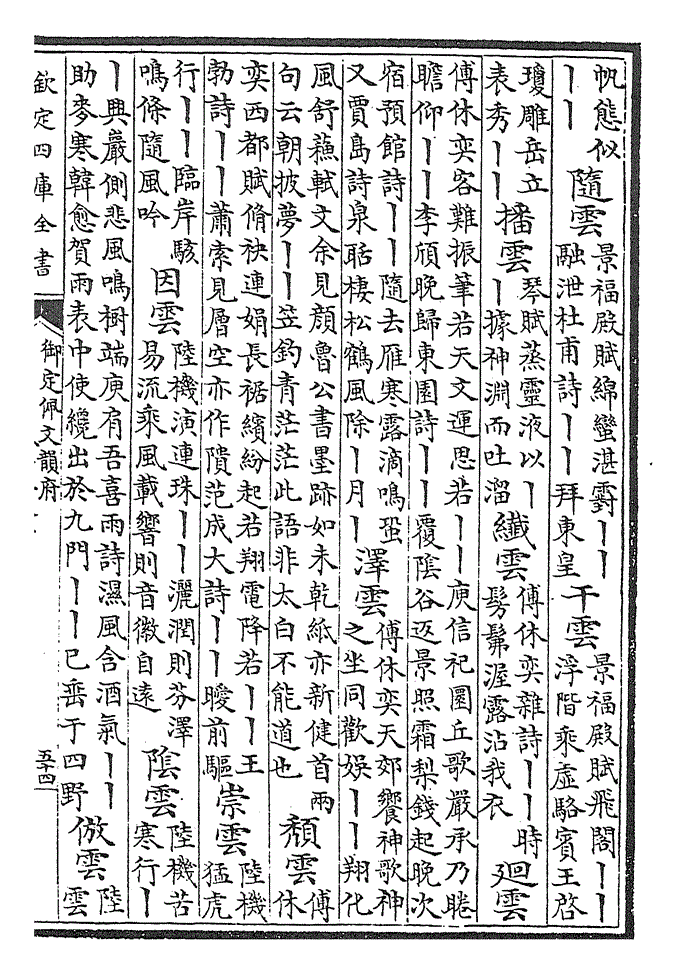 帆態似
丨丨
隨雲
景福殿賦綿蠻湛霨丨丨
融泄杜甫詩丨丨拜東皇
干雲
景福殿賦飛閣丨丨
浮階乘虛駱賓王啓
瓊雕岳立
表秀丨丨
播雲
琴賦蒸靈液以丨
丨據神淵而吐溜
纖雲
傅休奕雜詩丨丨時
髣髴渥露沾我衣
廻雲
傅休奕客難振筆若天文運思若丨丨庾信祀圜丘歌嚴承乃睠
瞻仰丨丨李頎晚歸東園詩丨丨覆陰谷返景照霜梨錢起晚次
宿預館詩丨丨隨去雁寒露滴鳴蛩
又賈島詩泉聒棲松鶴風除丨月丨
澤雲
傅休奕天郊饗神歌神
之坐同歡娛丨丨翔化
風舒蘓軾文余見顔魯公書墨跡如未乾紙亦新健首兩
句云朝披夢丨丨笠釣青茫茫此語非太白不能道也
頹雲
傅
休
奕西都賦脩袂連娟長裾繽紛起若翔電降若丨丨王
勃詩丨丨蕭索見層空亦作隤范成大詩丨丨曖前驅
崇雲
陸機
猛虎
行丨丨臨岸駭
鳴條隨風吟
因雲
陸機演連珠丨丨灑潤則芬澤
易流乘風載響則音徽自遠
陰雲
陸機苦
寒行丨
丨興巖側悲風鳴樹端庾肩吾喜雨詩濕風含酒氣丨丨
助麥寒韓愈賀雨表中使纔出於九門丨丨已垂于四野
倣雲
陸
雲
欽定四庫全書
御定佩文韻府
五十四